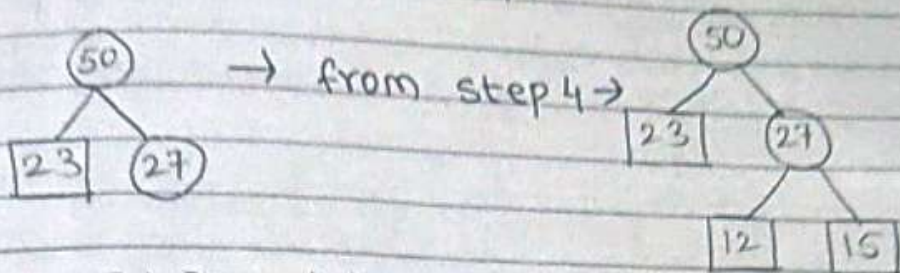 50
→ from step 4 →
50
23 27
23 27
12 15